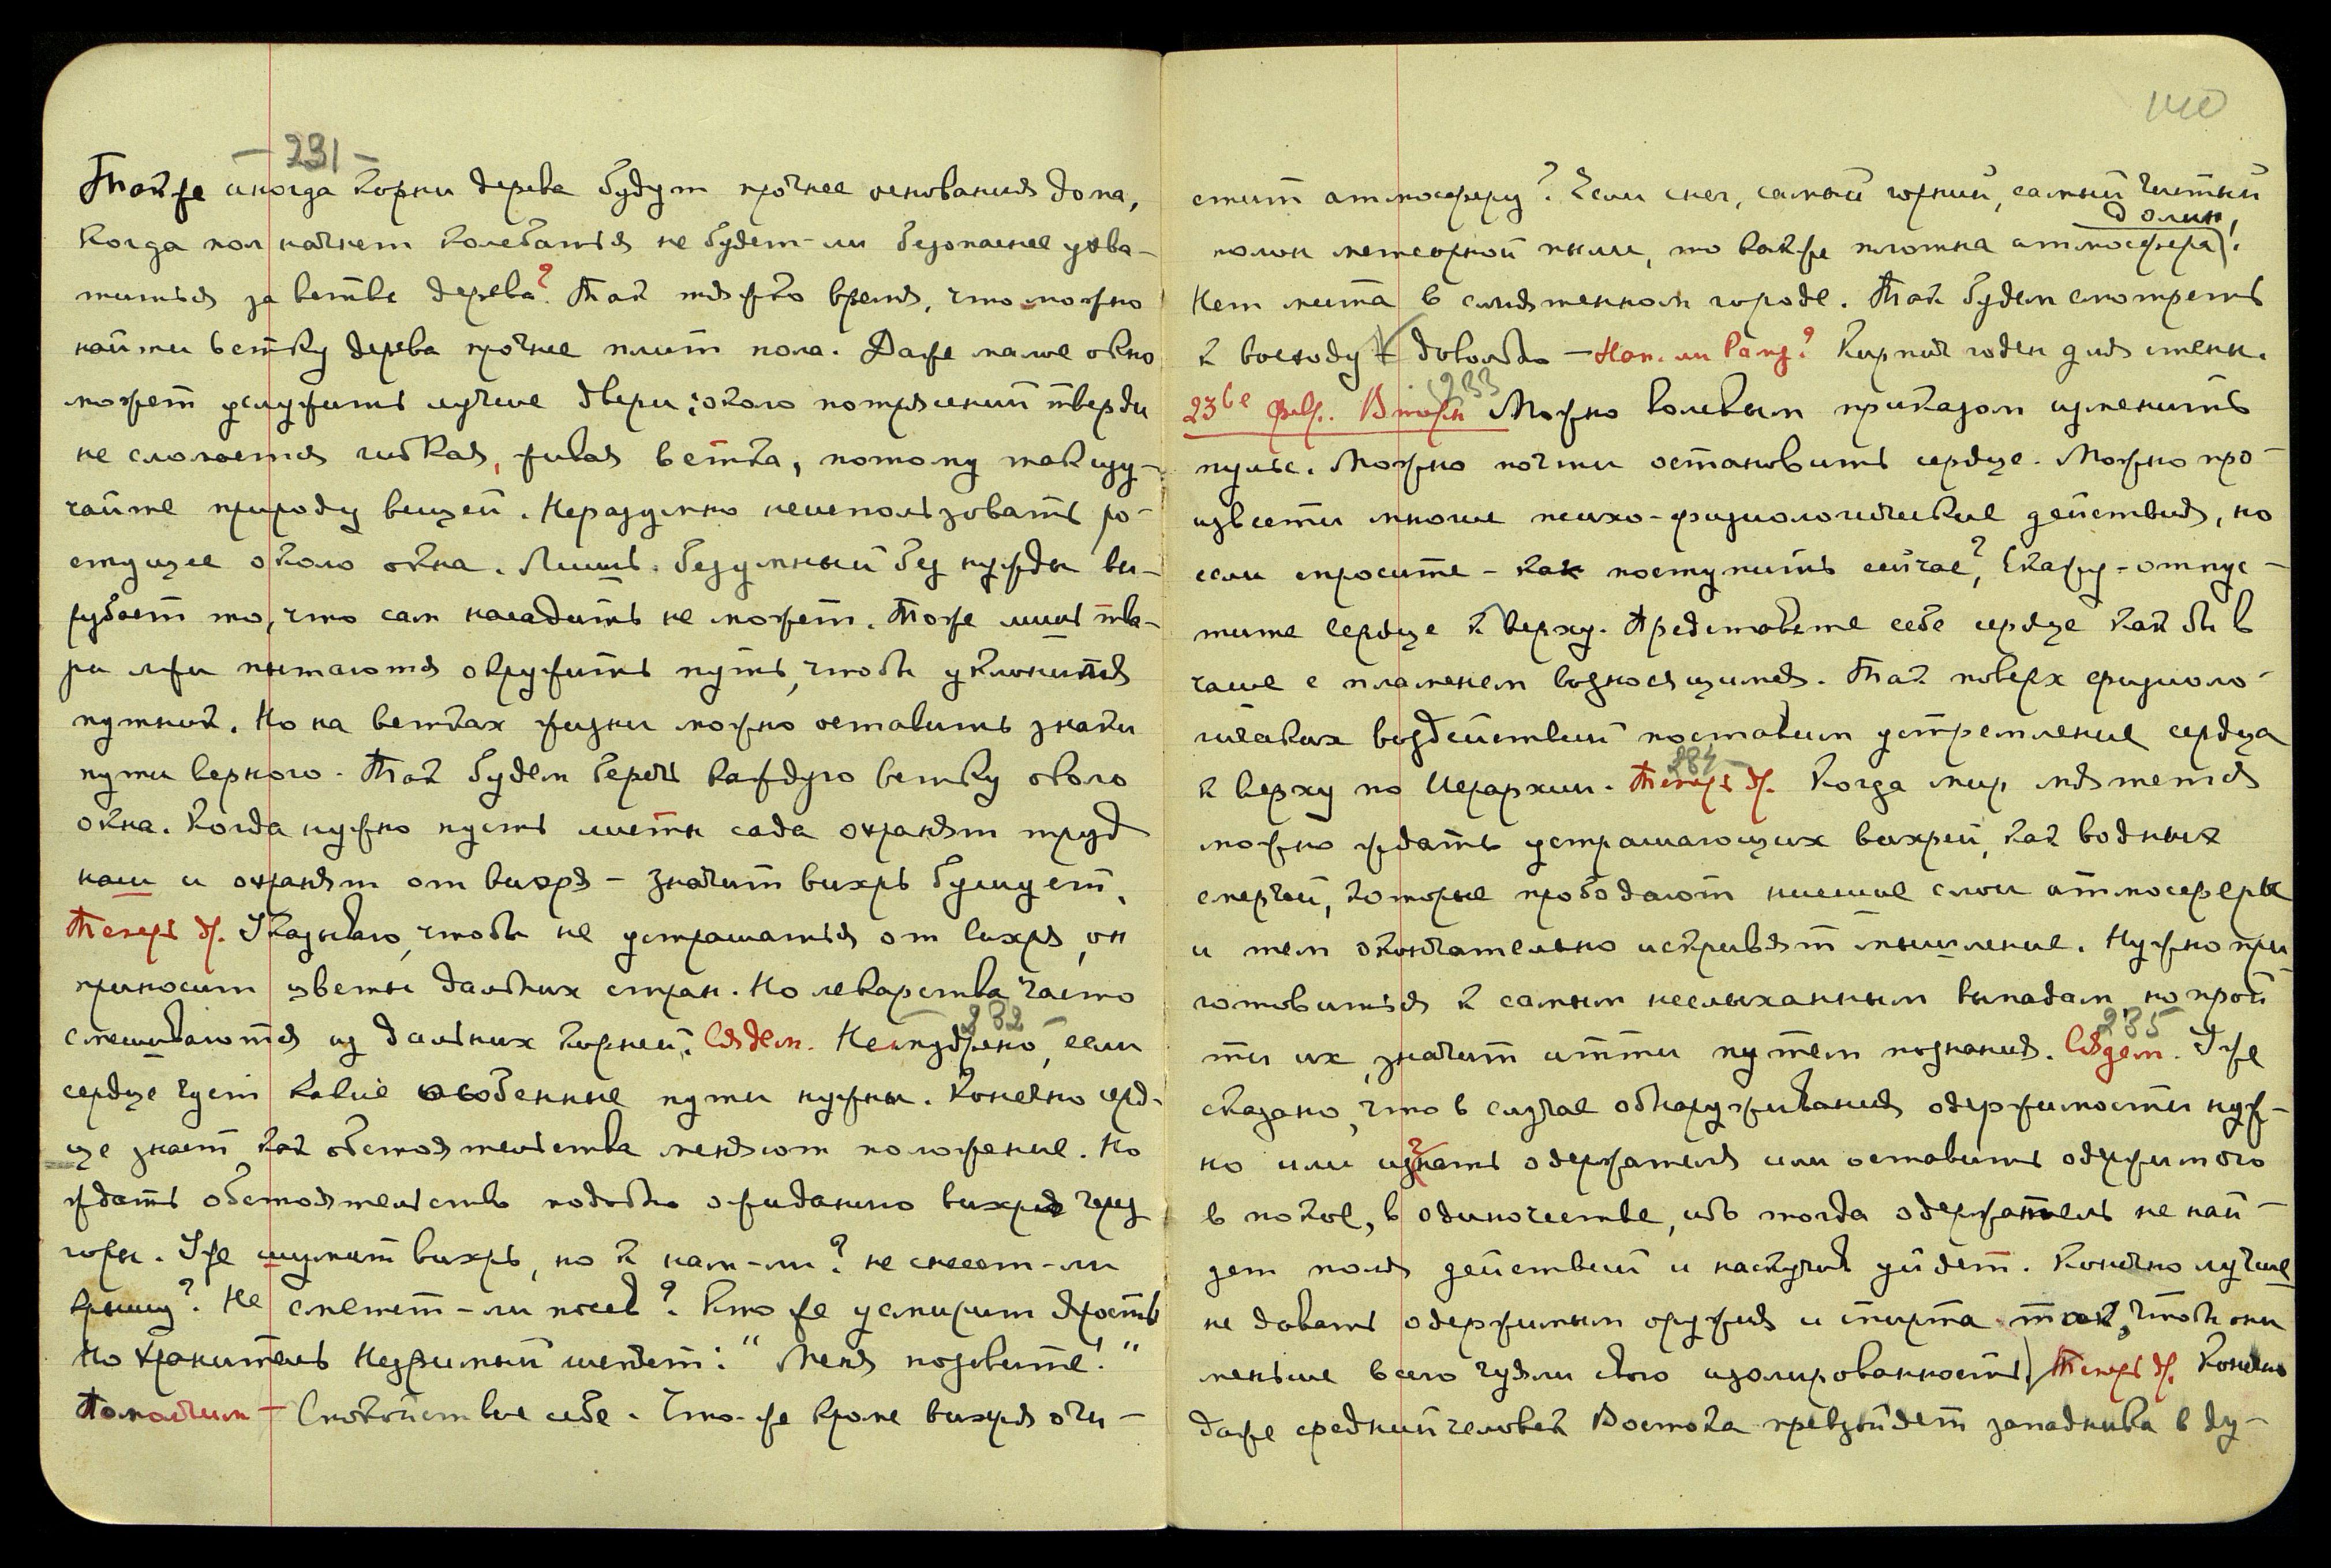 — 231 —
Также иногда корни дерева будут прочнее основания дома,
когда пол начнет колебаться не будет-ли безопаснее ухва-
титься за ветвь дерева? Так тяжко время, что можно
найти ветку дерева прочнее плит пола. Даже малое окно
может услужить лучше двери; около потрясений тверди
не сломается гибкая, живая ветка, потому так изу-
чайте природу вещей. Неразумно неиспользовать ра-
стущее около окна. Лишь безумный без нужды вы-
рубает то, что сам насадить не может. Тоже лишь тва-
ри лжи пытаются окружить путь, чтобы уклонился
путник. Но на ветках жизни можно оставить знаки
пути верного. Так будем беречь каждую ветку около
окна. Когда нужно пусть листы сада охранят труд
наш и охранят от вихря — значит вихрь бушует.
Теперь др. Указываю, чтобы не устрашаться от вихря, он
приносит цветы дальних стран. Но лекарства часто
смешиваются из дальних корней. Сядем. 232 Немудрено, если
сердце чует какие особенные пути нужны. Конечно серд-
це знает как обстоятельства меняют положение. Но
ждать обстоятельств подобно ожиданию вихря через
горы. Уже шумит вихрь, но к нам-ли? не снесет-ли
крышу? Не сметет-ли посев? Кто же усмирит ярость
Но Хранитель Незримый шепчет: "Меня позовите!"
Помолчим — Спокойствие себе. Что-же кроме вихря очи-
140
стит атмосферу? Если снег, самый горний, самый чистый
полон метеорной пыли, то какже плотна атмосфера долин!
Нет места в смятенном городе. Так будем смотреть
к восходу довольно — Кирпич годен для стены.
23ье Февр. Вторн 233 Можно волевым приказом изменить
пульс. Можно почти остановить сердце. Можно про-
извести многие психо-физиологические действия, но
если спросите — как поступить сейчас? Скажу — отпус-
тите Сердце к верху. Представьте себе сердце как бы в
чаше с пламенем возносящимся. Так поверх физиоло-
гических воздействий поставим устремление сердца
к верху по Иерархии. Теперь др. 234 Когда мир мятется
можно ждать устрашающих вихрей, как водных
смерчей, которые прободают низшие слои атмосферы
и тем окончательно искривят мышление. Нужно при
готовиться к самым неслыханным выпадам, но прой
ти их, значит итти путем познания. Сядем. 235 Уже
сказано, что в случае обнаруживания одержимости нуж-
но или изгнать одержателя или оставить одержимого
в покое, в одиночестве, ибо тогда одержатель не най-
дет поля действий и наскучив уйдет. Конечно лучше
не давать одержимым оружия и спирта так, чтобы они
меньше всего чуяли свою изолированность) Теперь др. Конечно
даже средний человек Востока превзойдет западника в ду-